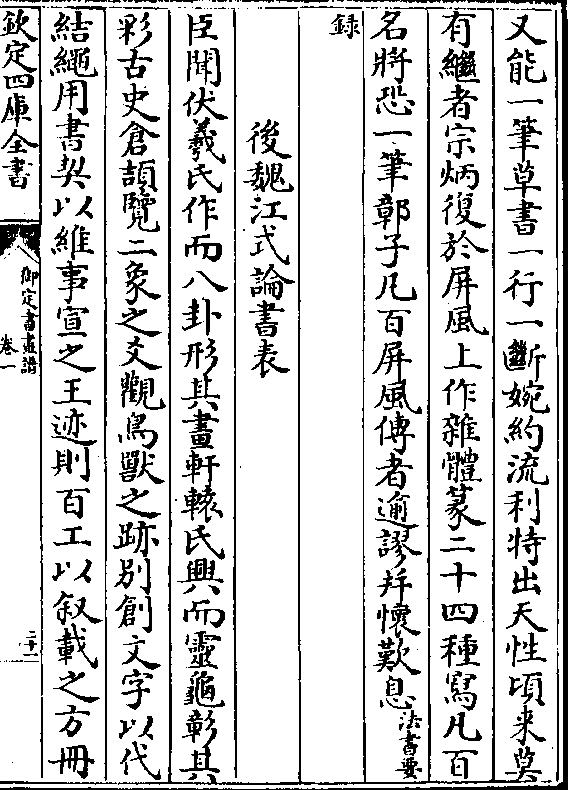 又能一筆草書一行一斷婉約流利特出天性頃来莫
有繼者宗炳復於屏風上作雜體篆二十四種寫凡百
名將恐一筆鄣子凡百屏風傳者逾謬并懷歎息法書要
録
後魏江式論書表
臣聞伏羲氏作而八卦形其畫軒轅氏興而靈龜彰其
彩古史倉頡覽二象之爻觀鳥獸之跡别創文字以代
結繩用書契以維事宣之王迹則百工以叙載之方冊
欽定四庫全書
御定書畫譜
卷一
二十一